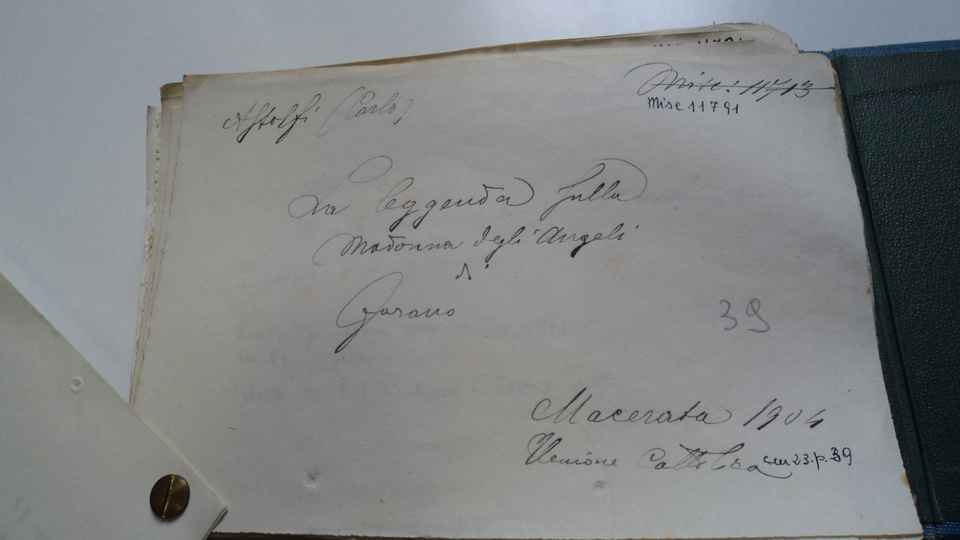 Misc. 1713
Misc 11791
Astolfi (Carlo)
La leggenda sulla
Madonna degli Angeli
di
39
Macerata 1904
Unione Catt.
cm 23. p. 39